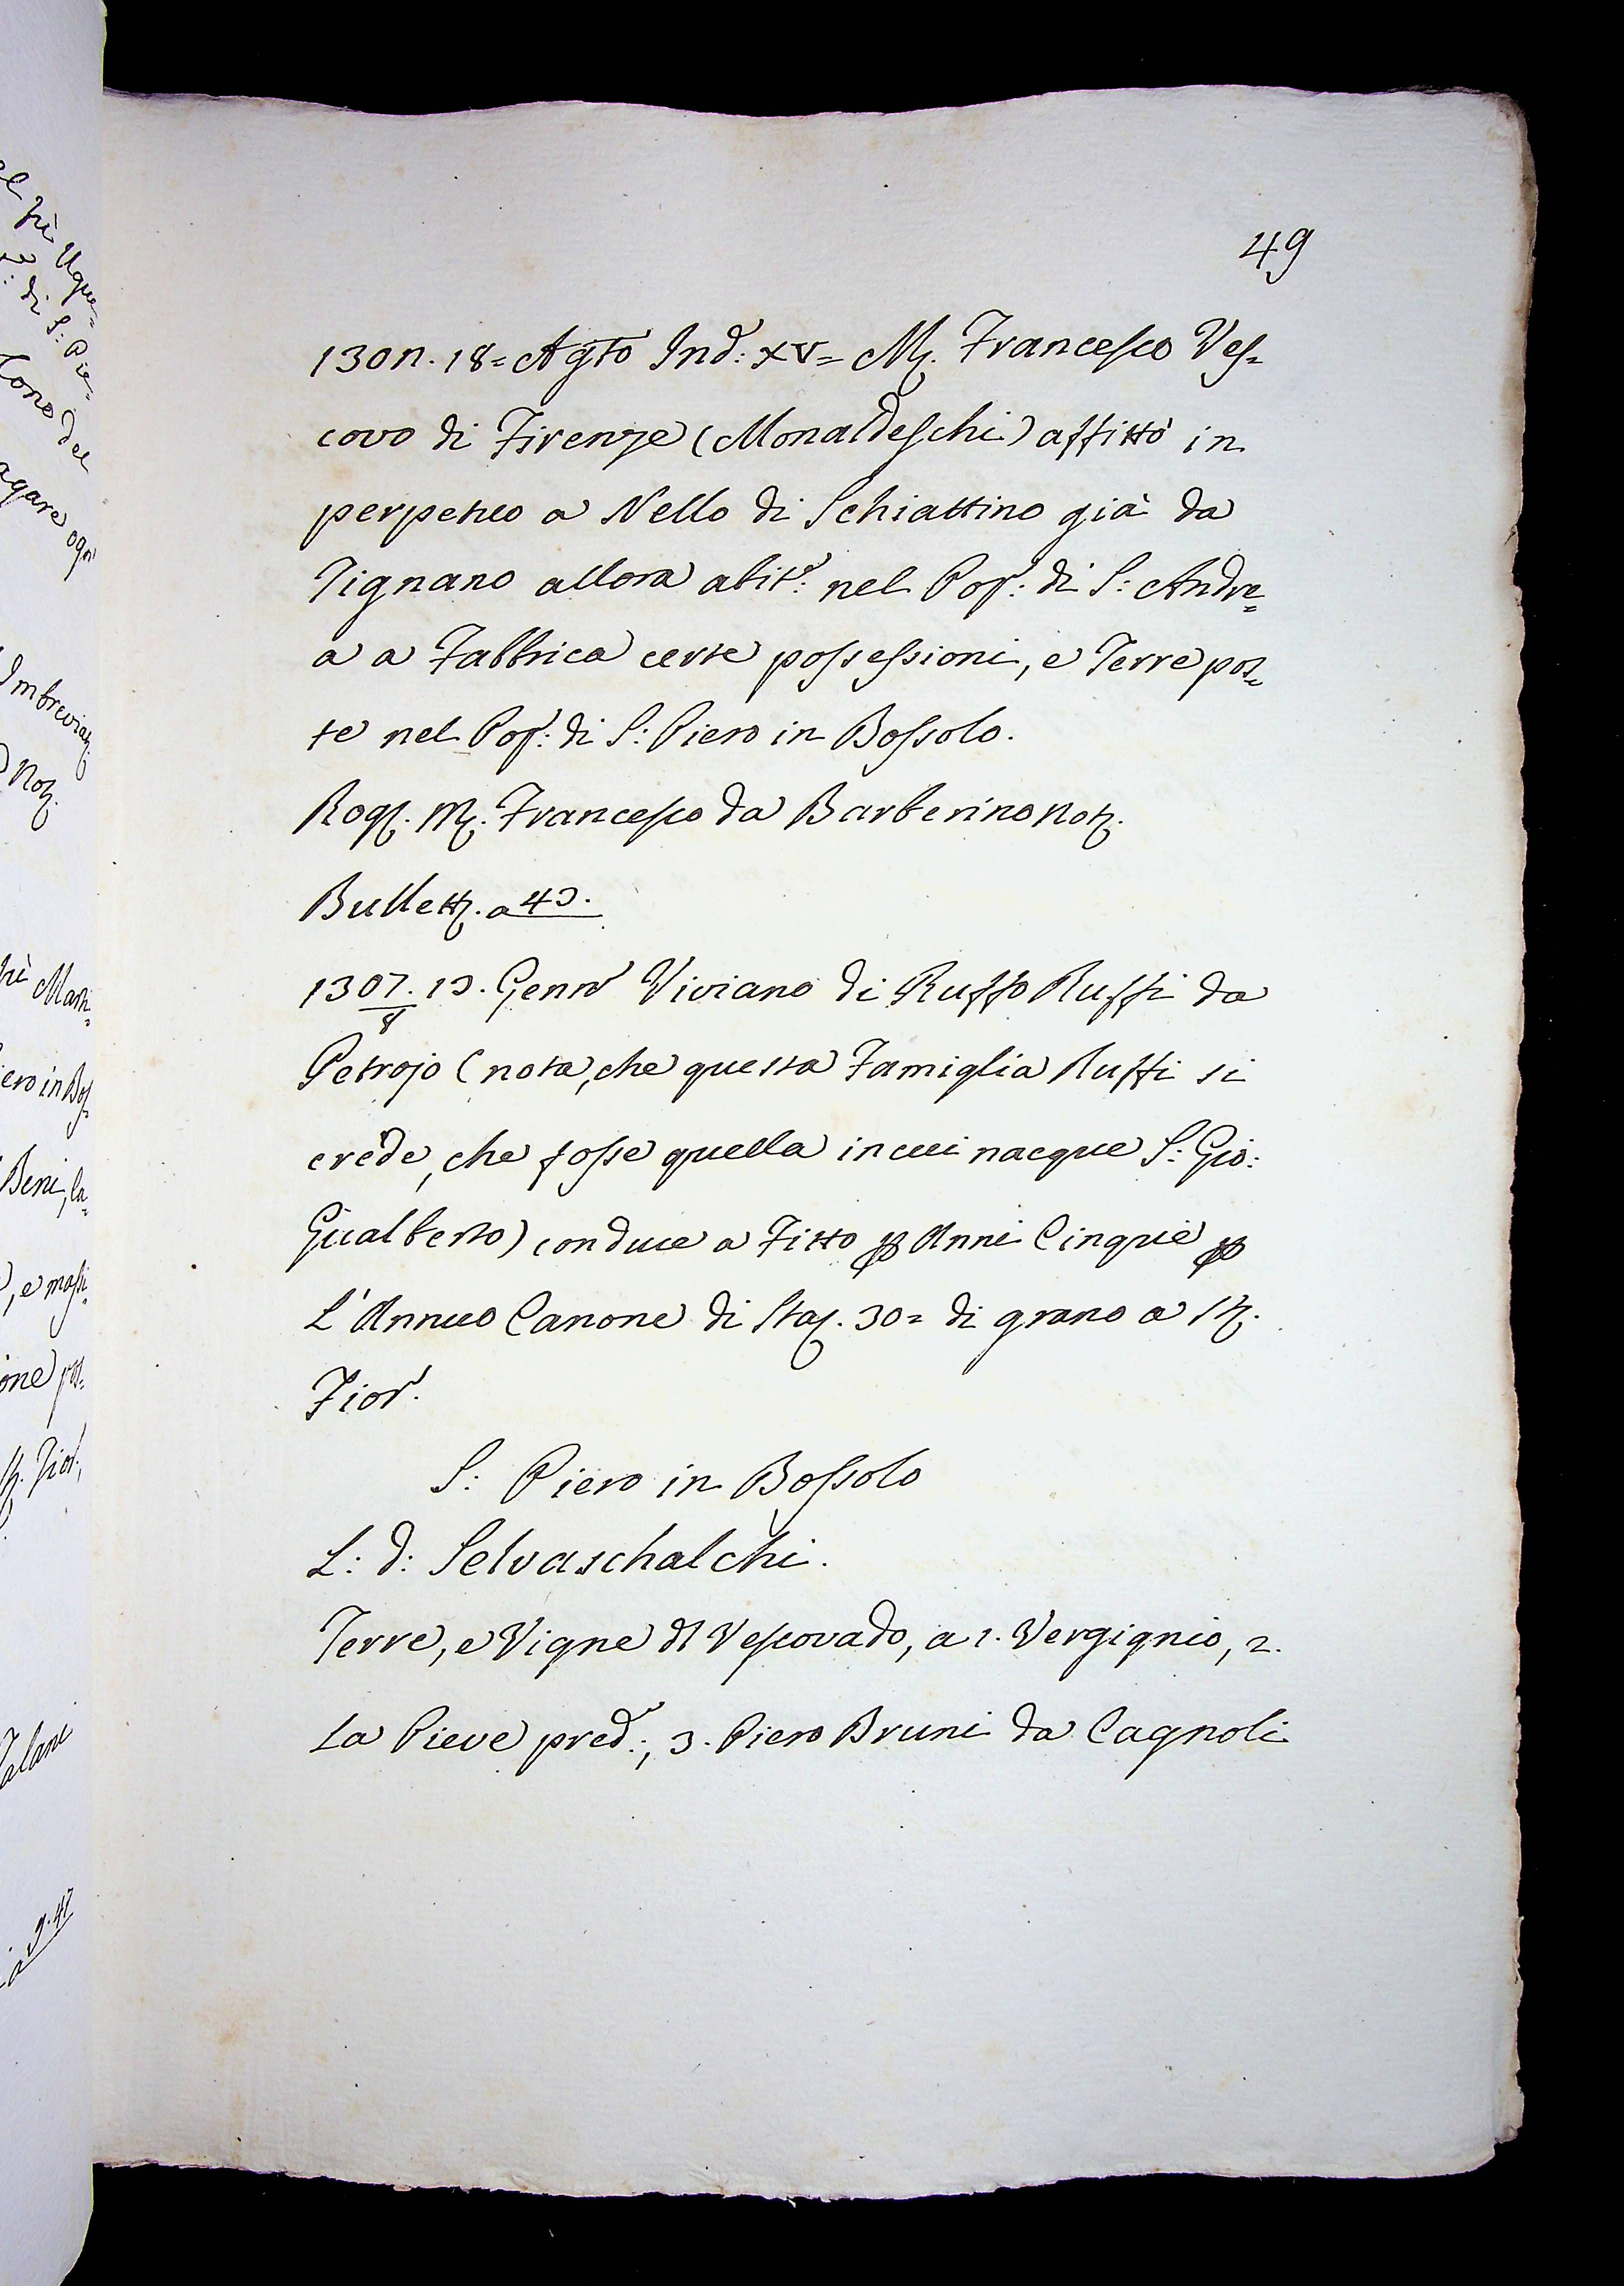 49
130n. 18= Agto Ind: XV= M. Francesco Ves=
covo di Firenze (Monaldeschi) affittò in
perpetuo a Nello di Schiattino già da
Tignano allora abit: nel Pop: di S: Andre=
a a Fabbrica certe possessioni, e Terre pos=
te nel Pop: di S: Piero in Bossolo.
Rog. M. Francesco da Barberino Not.
Bullett. a 43.
1307. 13. Genn Viviano di Ruffo Ruffi da
8
Petrojo (nota, che questa Famiglia Ruffi si
crede, che fosse quella in cui nacque S: Gio:
Gualberto) conduce a Fitto p Anni Cinque p
L'Annuo Canone di Staj. 30= di grano a St.
Fior.
S: Piero in Bossolo
L: d: Selvaschalchi.
Terre, e Vigne dl Vescovado, a 1. Vergignio, 2.
la Pieve pred:, 3. Piero Bruni da Cagnoli